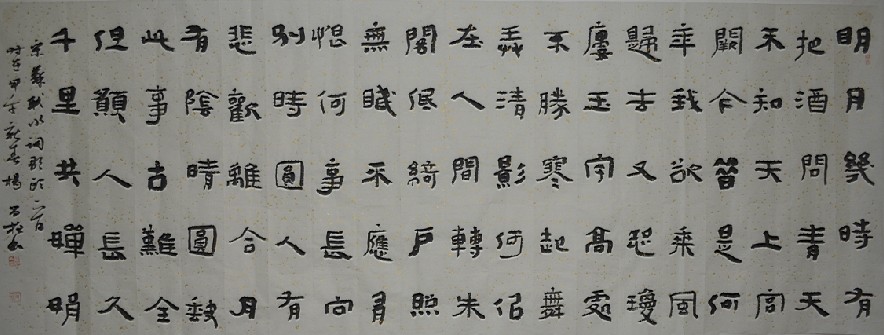 明月幾時有
把酒問青天
不知天上宮
闕今昔是何
年我欲乘風
歸去又恐瓊
廔玉宇高處
不勝寒起舞
弄清影何佀
在人間轉朱
閣低綺戶照
無眠不應有
恨何事長向
別時圓人有
悲歡離合月
有陰晴圓缺
此事古難全
但願人長久
千里共嬋娟
宋蘇軾水調歌頭一首
時在甲午新春楊